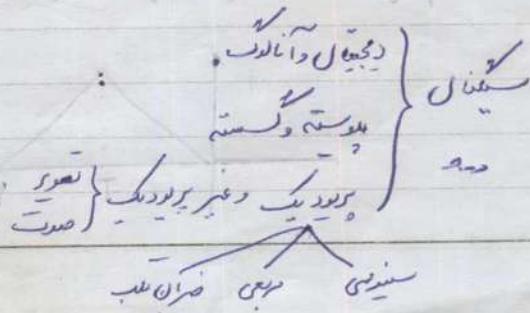 سیگنال
دیجیتال و آنالوگ
پیوسته و گسسته
پریودیک و غیر پریودیک
تصویر
صوت
سینوسی مربعی ضربان قلب